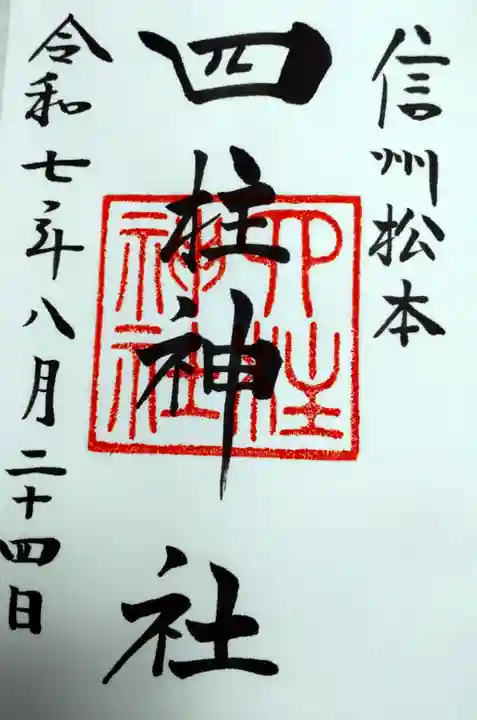 信州松本
四柱神社
四柱
神社
令和七年八月二十四日